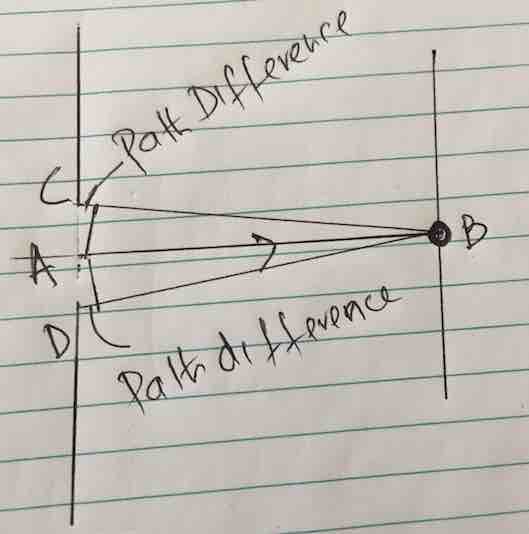 Path Difference
C
A
B
D
Path difference